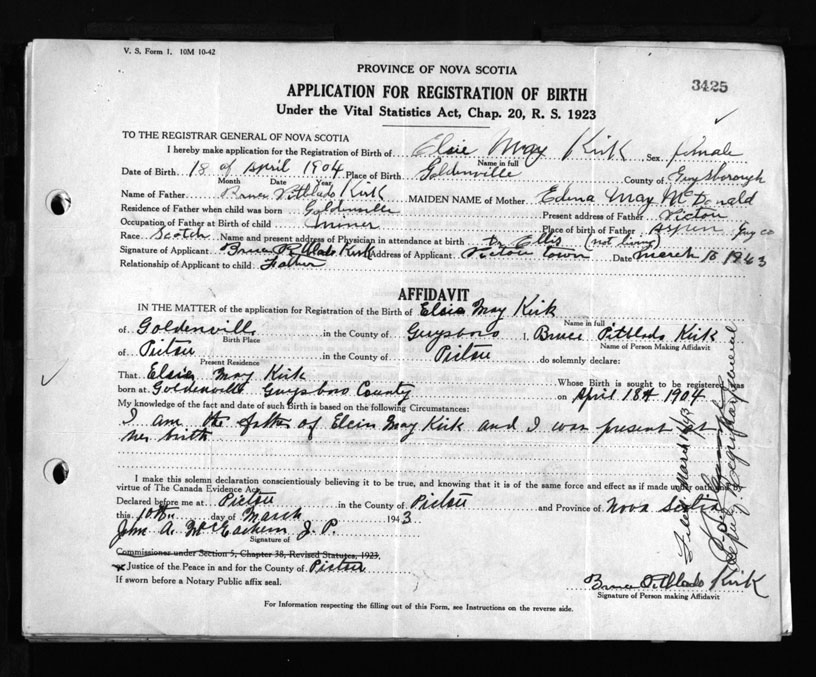 V. S. Form 1. 10M 10-42
PROVINCE OF NOVA SCOTIA
3425
APPLICATION FOR REGISTRATION OF BIRTH
Under the Vital Statistics Act, Chap. 20, R. S. 1923
TO THE REGISTRAR GENERAL OF NOVA SCOTIA
I hereby make application for the Registration of Birth of Elsie May Kirk Sex female
Name in full
Date of Birth 18 of April 1904 Place of Birth Goldenville County of Guysborough
Month Date Year
Name of Father Bruce Pitblado Kirk MAIDEN NAME of Mother Edena May McDonald
Residence of Father when child was born Goldenville Present address of Father Pictou
Occupation of Father at Birth of child miner Place of birth of Father Guy Co
Race Scotch Name and present address of Physician in attendance at birth Dr Ellis (not living)
Signature of Applicant Bruce Pitblado Kirk Address of Applicant Pictou town Date March 10 1943
Relationship of Applicant to child Father
AFFIDAVIT
IN THE MATTER of the application for Registration of the Birth of Elsie May Kirk
Name in full
of Goldenville in the County of Guysboro I, Bruce Pitblado Kirk
Birth Place Name of Person Making Affidavit
of Pictou in the County of Pictou do solemnly declare:
Present Residence
That Elsie May Kirk Whose Birth is sought to be registered was
born at Goldenville Guysboro County on April 18th 1904
My knowledge of the fact and date of such Birth is based on the following Circumstances:
I am the father of Elsie May Kirk and I was present at
her birth
I make this solemn declaration conscientiously believing it to be true, and knowing that it is of the same force and effect as if made under oath
virtue of The Canada Evidence Act.
Declared before me at Pictou in the County of Pictou and Province of Nova Scotia
this 10th day of March 1943
John A. McEachern J. P.
Signature of
Commissioner under Section 5, Chapter 38, Revised Statutes, 1923,
x Justice of the Peace in and for the County of Pictou
If sworn before a Notary Public affix seal.
Bruce Pitblado Kirk
Signature of Person making Affidavit
For Information respecting the filling out of this Form, see Instructions on the reverse side.
Filed March 16/43
Deputy Registrar General